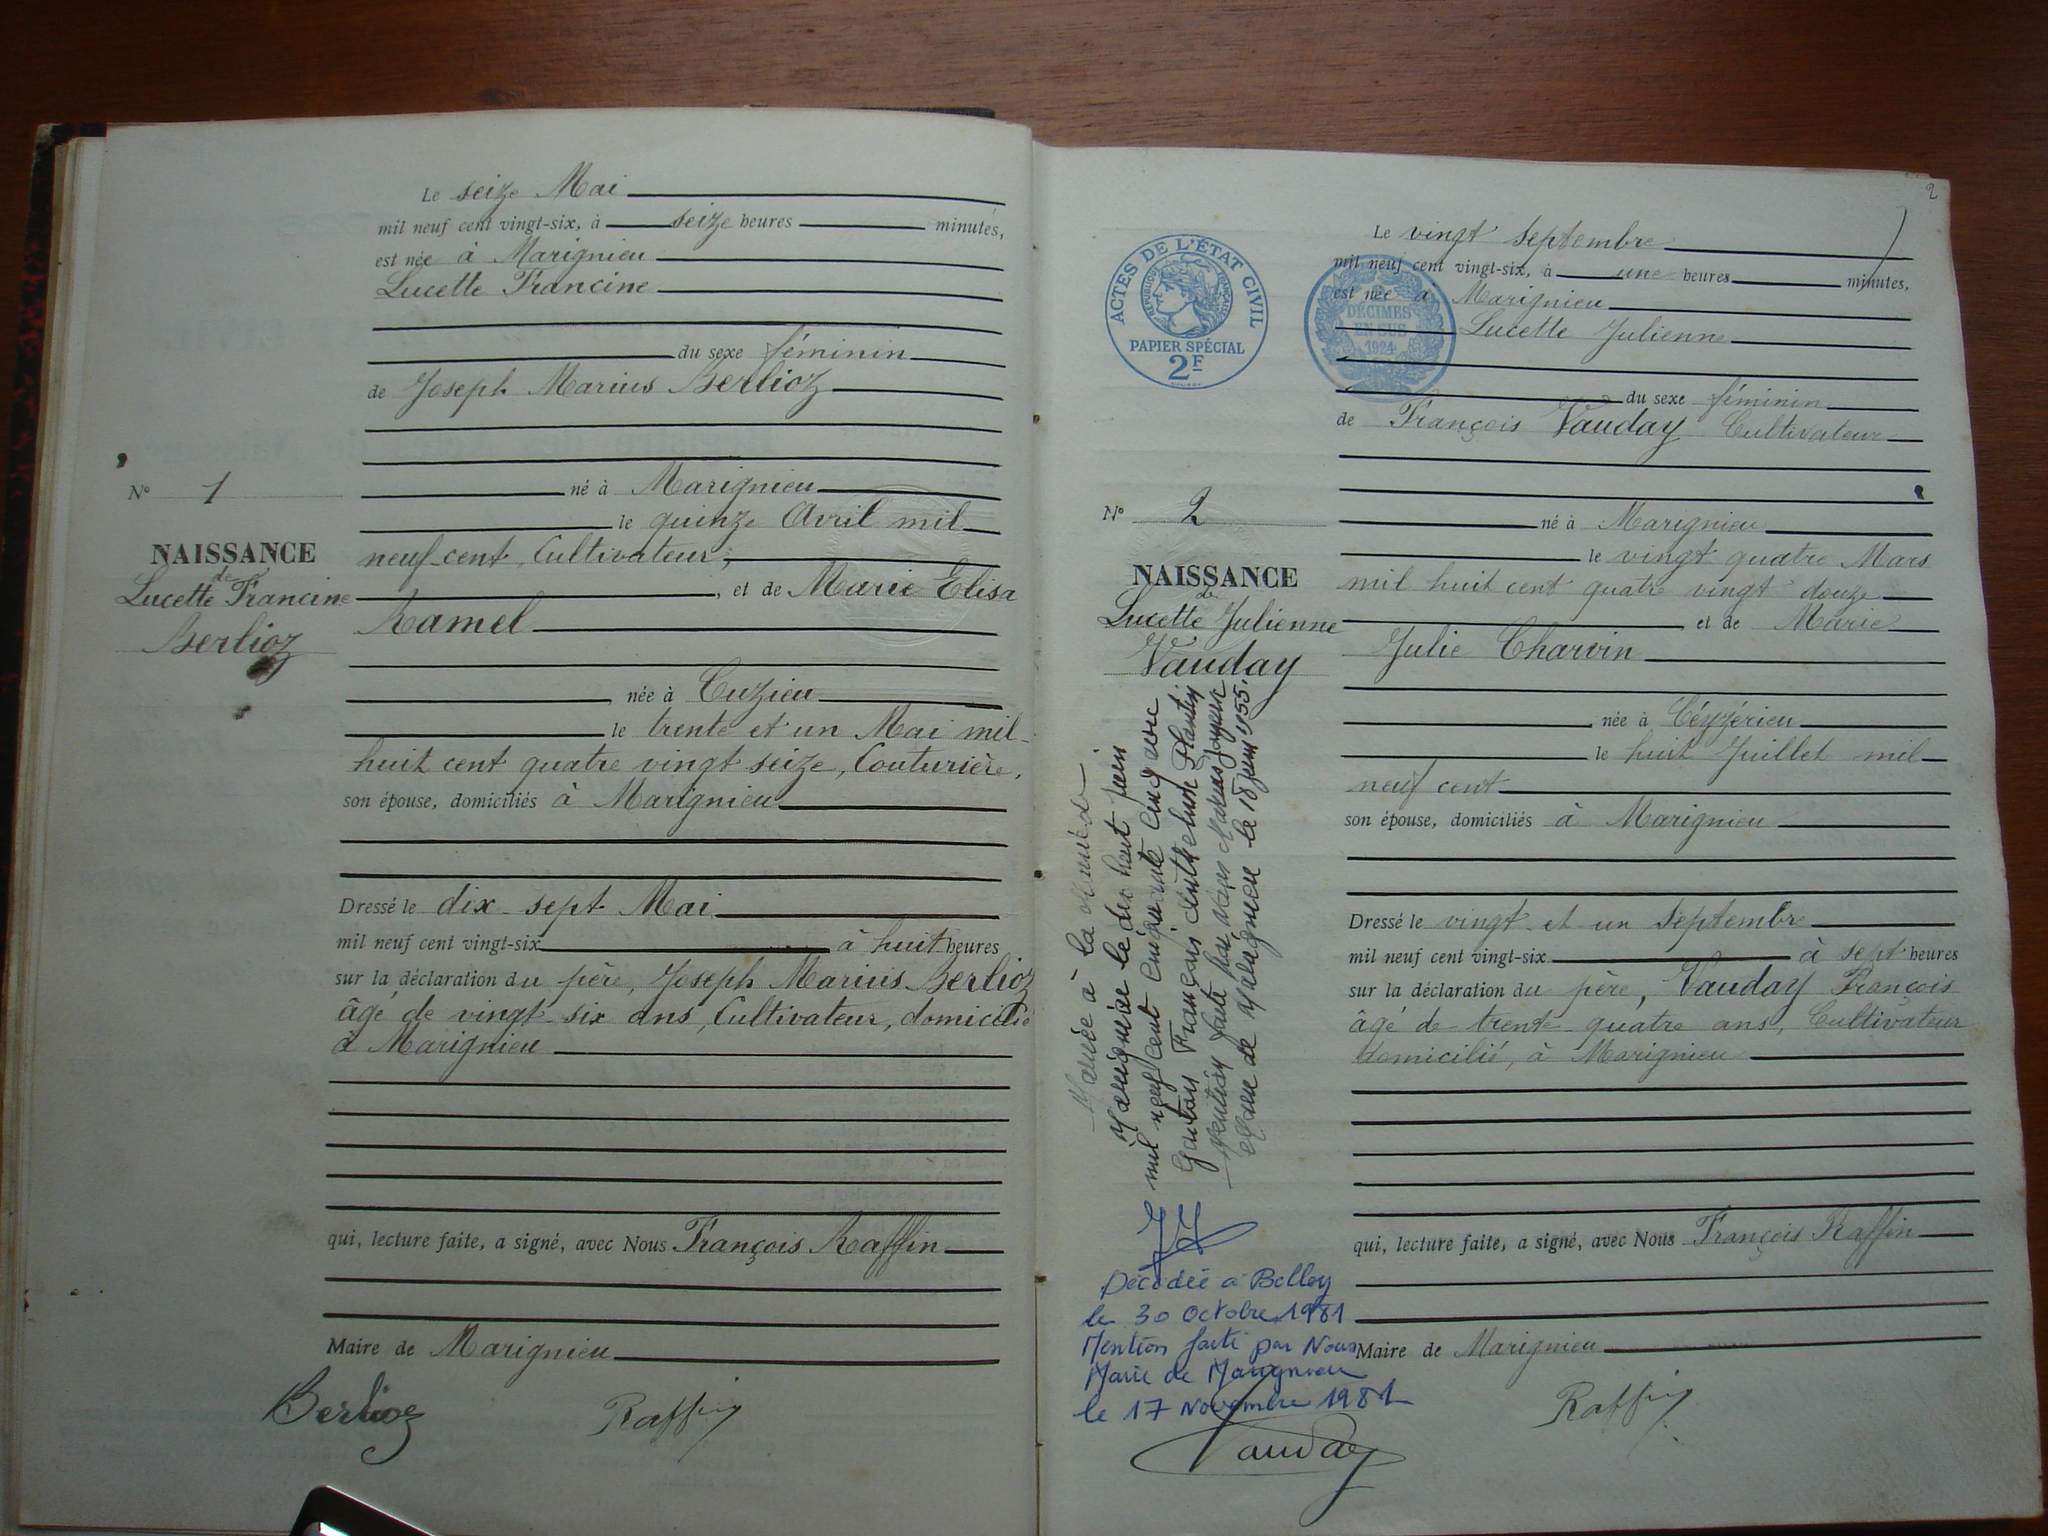 Le seize Mai
mil neuf cent vingt-six, à seize heures minutes,
est née à Marignieu
Lucette Francine
du sexe féminin
de Joseph Marius Berlioz
né à Marignieu
le quinze Avril mil
neuf cent, Cultivateur,
, et de Marie Elisa
Ramel
, née à Cuzieu
le trente et un Mai mil
huit cent quatre vingt seize, Couturière,
son épouse, domiciliés à Marignieu
Dressé le dix sept Mai
mil neuf cent vingt-six à huit heures
sur la déclaration du père, Joseph Marius Berlioz
âgé de vingt six ans, Cultivateur, domicilié
à Marignieu
qui, lecture faite, a signé, avec Nous François Raffin
Maire de Marignieu
Berlioz Raffin
N° 1
NAISSANCE
de
Lucette Francine
Berlioz
2
ACTES DE L'ÉTAT CIVIL
RÉPUBLIQUE FRANÇAISE
PAPIER SPÉCIAL
2F
DÉCIMES
EN SUS
1924
Le vingt septembre
mil neuf cent vingt-six, à une heures minutes,
est née à Marignieu
Lucette Julienne
du sexe féminin
de François Vauday Cultivateur
né à Marignieu
le vingt quatre Mars
mil huit cent quatre vingt douze
et de Marie
Julie Charvin
, née à Céyzérieu
le huit Juillet mil
neuf cent
son épouse, domiciliés à Marignieu
Dressé le vingt et un Septembre
mil neuf cent vingt-six à sept heures
sur la déclaration du père, Vauday François
âgé de trente quatre ans, Cultivateur
domicilié, à Marignieu
qui, lecture faite, a signé, avec Nous François Raffin
Maire de Marignieu
Raffin
N° 2
NAISSANCE
de
Lucette Julienne
Vauday
Mariée à la
Marignieu le dix huit juin
mil neuf cent cinquante cinq avec
François Anthelme
Mention faite par Nous
Maire de Marignieu le 18 juin 1955.
Décédée à Belley
le 30 octobre 1981
Mention faite par Nous
Maire de Marignieu
le 17 Novembre 1981
Vauday